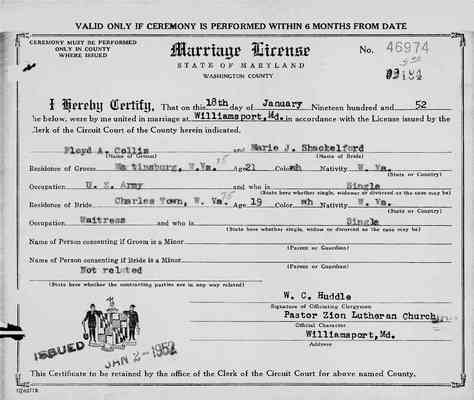 VALID ONLY IF CEREMONY IS PERFORMED WITHIN 6 MONTHS FROM DATE
CEREMONY MUST BE PERFORMED
ONLY IN COUNTY
WHERE ISSUED
Marriage License
STATE OF MARYLAND
WASHINGTON COUNTY
No. 46974
I Hereby Certify, That on this 18th day of January Nineteen hundred and 52
he below, were by me united in marriage at Williamsport, Md. in accordance with the License issued by the
Clerk of the Circuit Court of the County herein indicated.
Floyd A. Collis and Marie J. Shackelford
(Name of Groom) (Name of Bride)
Residence of Groom Martinsburg, W. Va. Age 21 Color wh Nativity W. Va.
(State or Country)
Occupation U. S. Army and who is Single
(State here whether single, widower or divorced as the case may be)
Residence of Bride Charles Town, W. Va. Age 19 Color wh Nativity W. Va.
(State or Country)
Occupation Waitress and who is Single
(State here whether single, widow or divorced as the case may be)
Name of Person consenting if Groom is a Minor
(Parent or Guardian)
Name of Person consenting if Bride is a Minor
(Parent or Guardian)
Not related
(State here whether the contracting parties are in any way related)
W. C. Huddle
Signature of Officiating Clergyman
Pastor Zion Lutheran Church
Official Character
Williamsport, Md.
Address
ISSUED JAN 2-1952
This Certificate to be retained by the office of the Clerk of the Circuit Court for above named County.